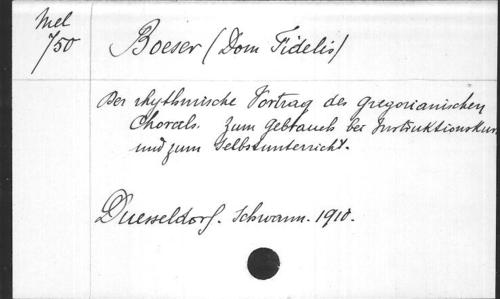 Mel
750
Boeser (Dom Fidelis)
Der rhythmische Vortrag des gregorianischen
Chorals. Zum Gebrauch bei Instruktionskur
und zum Selbstunterricht.
Duesseldorf. Schwann. 1910.